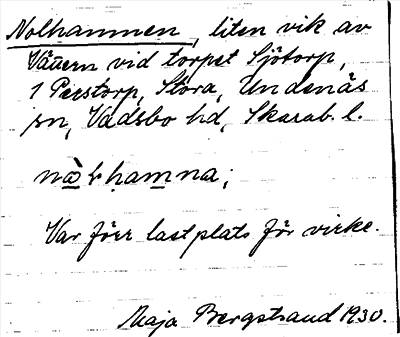 Nolhamnen, liten vik av
Vänern vid torpet Sjötorp,
1 Perstorp, Stora, Undenäs
sn, Vadsbo hd, Skarab. l.
nàɽhamna;
Var förr lastplats för virke.
Maja Bergstrand 1930.